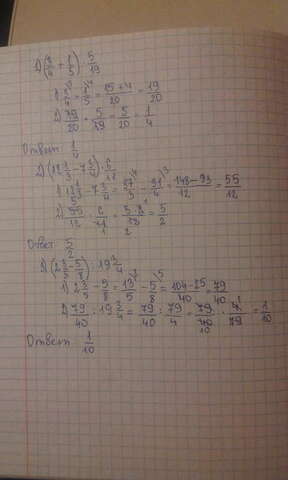 1) (3/4 + 1/5) · 5/19
1) 3/4 + 1/5 = 15+4/20 = 19/20
2) 19/20 · 5/19 = 5/20 = 1/4
Ответ 1/4
2) (12 1/3 - 7 3/4) · 6/11
1) 12 1/3 - 7 3/4 = 37/3 - 31/4 = 148-93/12 = 55/12
2) 55/12 · 6/11 = 5·1/2 = 5/2
Ответ 5/2
3) (2 3/5 - 5/8) : 19 3/4
1) 2 3/5 - 5/8 = 13/5 - 5/8 = 104-25/40 = 79/40
2) 79/40 : 19 3/4 = 79/40 : 79/4 = 79/40 · 4/79 = 1/10
Ответ 1/10